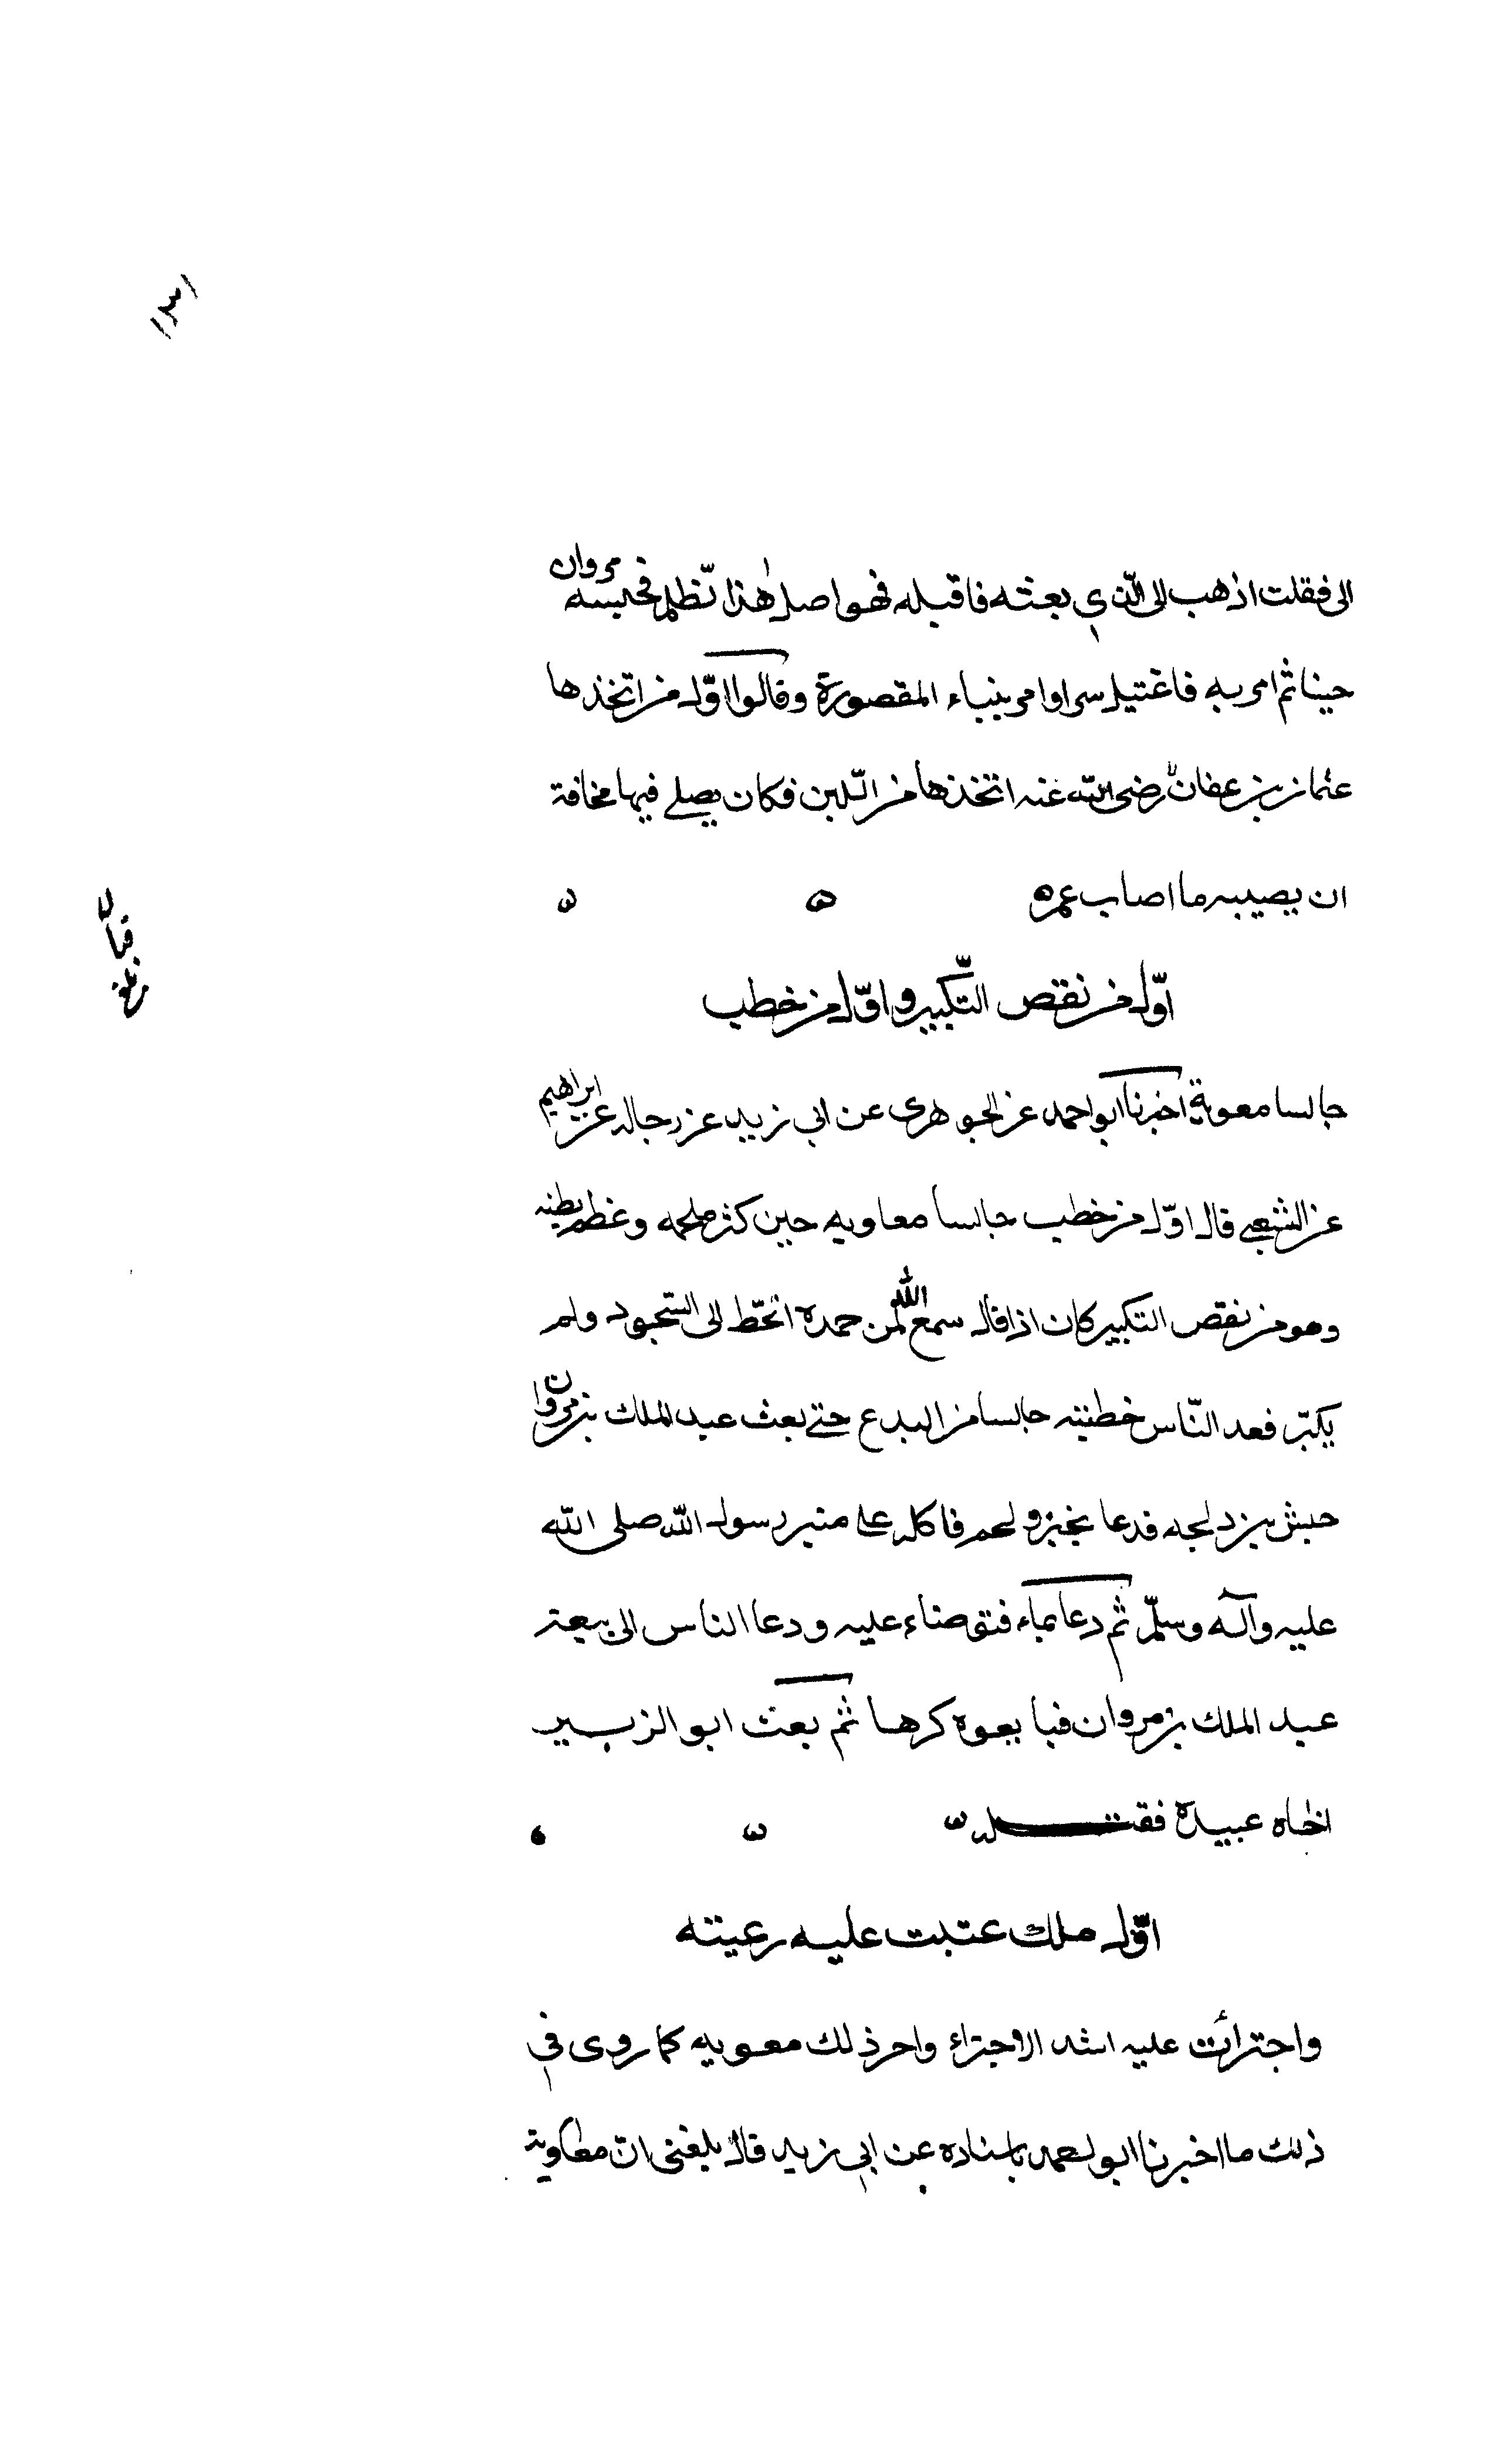 ١٣١
الى فقلت اذهب الى الذي بعثه فاقبله فهو اصل هذا تظلم فحبسه مروان
حينا ثم امر به فاغتيل سرا وامر ببناء المقصورة وقالوا اوّل من اتخذها
عثمان بن عفان رضى الله عنه اتخذها من اللّبن فكان يصلے فيها مخافة
ان يصيبه ما اصاب عمره
اوّل من نقص التّكبير واوّل من خطب
جالسا معوية اخبرنا ابو احمد عن الجوهرى عن ابي زيد عن رجاله عن ابراهيم
عن الشعبے قال اوّل من خطب جالسا معاويه حين كثر ملحمه وعظم بطنه
وهو من نقص التكبير كان اذا قال سمع الله لمن حمده انحّط الى السّجود ولم
يكبّر فعد النّاس خطبته جالسا من البدع حتے بعث عبد الملك بن مروان
حبش بن دلجه فدعا بخبز ولحم فاكل علے منبر رسول الله صلى الله
عليه وآله وسلّم ثم دعا بماء فتوضاء عليه ودعا الناس الى بيعة
عبد الملك بن مروان فبايعوه كرها ثم بعث ابو الزبير
اخاه عبيدة فقتله
اوّل ملك عتبت عليه رعيته
واجترأت عليه اشد الاجتراء واحر ذلك معويه كما روى في
ذلك ما اخبرنا ابو احمد باسناده عن ابي زيد قال بلغنى انّ معاوية